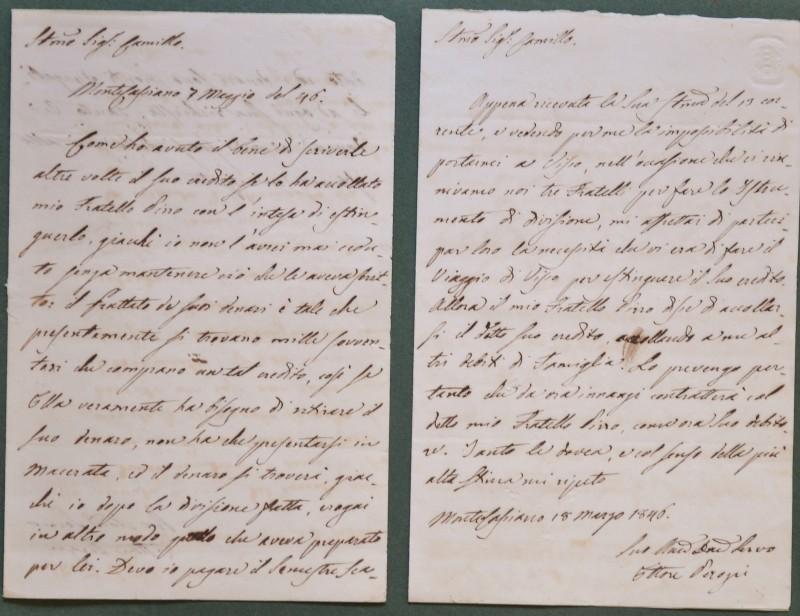 Stimo Sigr: Camillo.
Montecassiano 7 Maggio del 46.
Come ho avuto il bene di scriverle
altre volte il suo credito se lo ha accollato
mio Fratello Pirro con l'intesa di estin-
guerlo, giacchè io non l'averei mai cedu-
to senza mantenere ciò che le aveva scrit-
to: il frattato de suoi denari è tale che
presentemente si trovano mille sovven-
tori che comprano un tal credito, così se
Ella veramente ha bisogno di ritirare il
suo denaro, non ha che presentarsi in
Macerata, ed il denaro si troverà, giac-
chè io dopo la divisione fatta, erogai
in altro modo quello che aveva preparato
per lei. Devo io pagare il Semestre sca-
Stimo Sigr: Camillo.
Appena ricevuta la sua del 13 cor-
rente, e vedendo per me la impossibilità di
portarmi a Visso, nell'occasione che ci riu-
nivamo noi tre Fratelli per fare lo Istru-
mento di divisione, mi affrettai di parteci-
par loro la necessità che vi era di fare il
Viaggio di Visso per estinguere il suo credito.
Allora il mio Fratello Pirro disse di accollar-
si il detto suo credito, accollando a me al-
tri debiti di Famiglia. La prevengo per-
tanto che da ora innanzi contratterà col
detto mio Fratello Pirro, come ora suo debito-
re. Tanto le dovea, e col senso della più
alta stima mi ripeto
Montecassiano 18 Marzo 1846.
Suo Servo
Ettore Perogri